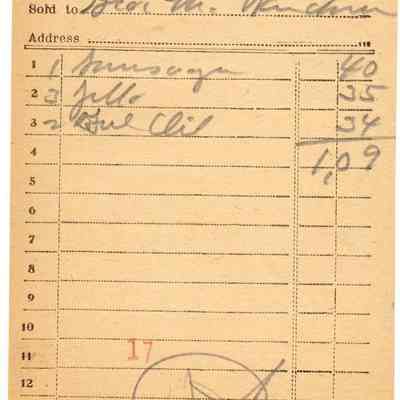 Sold to Geo. M.
Address
1 1 40
2 3 Jello 35
3 2 34
4 1,09
5
6
7
8
9
10
11 17
12